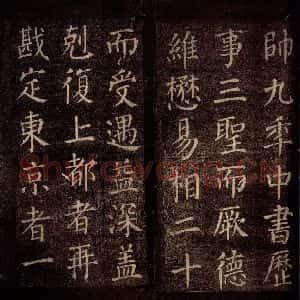 帥九秊中書歷
事三聖而厥德
維懋易相二十
而受遇益深蓋
剋復上都者再
戡定東京者一